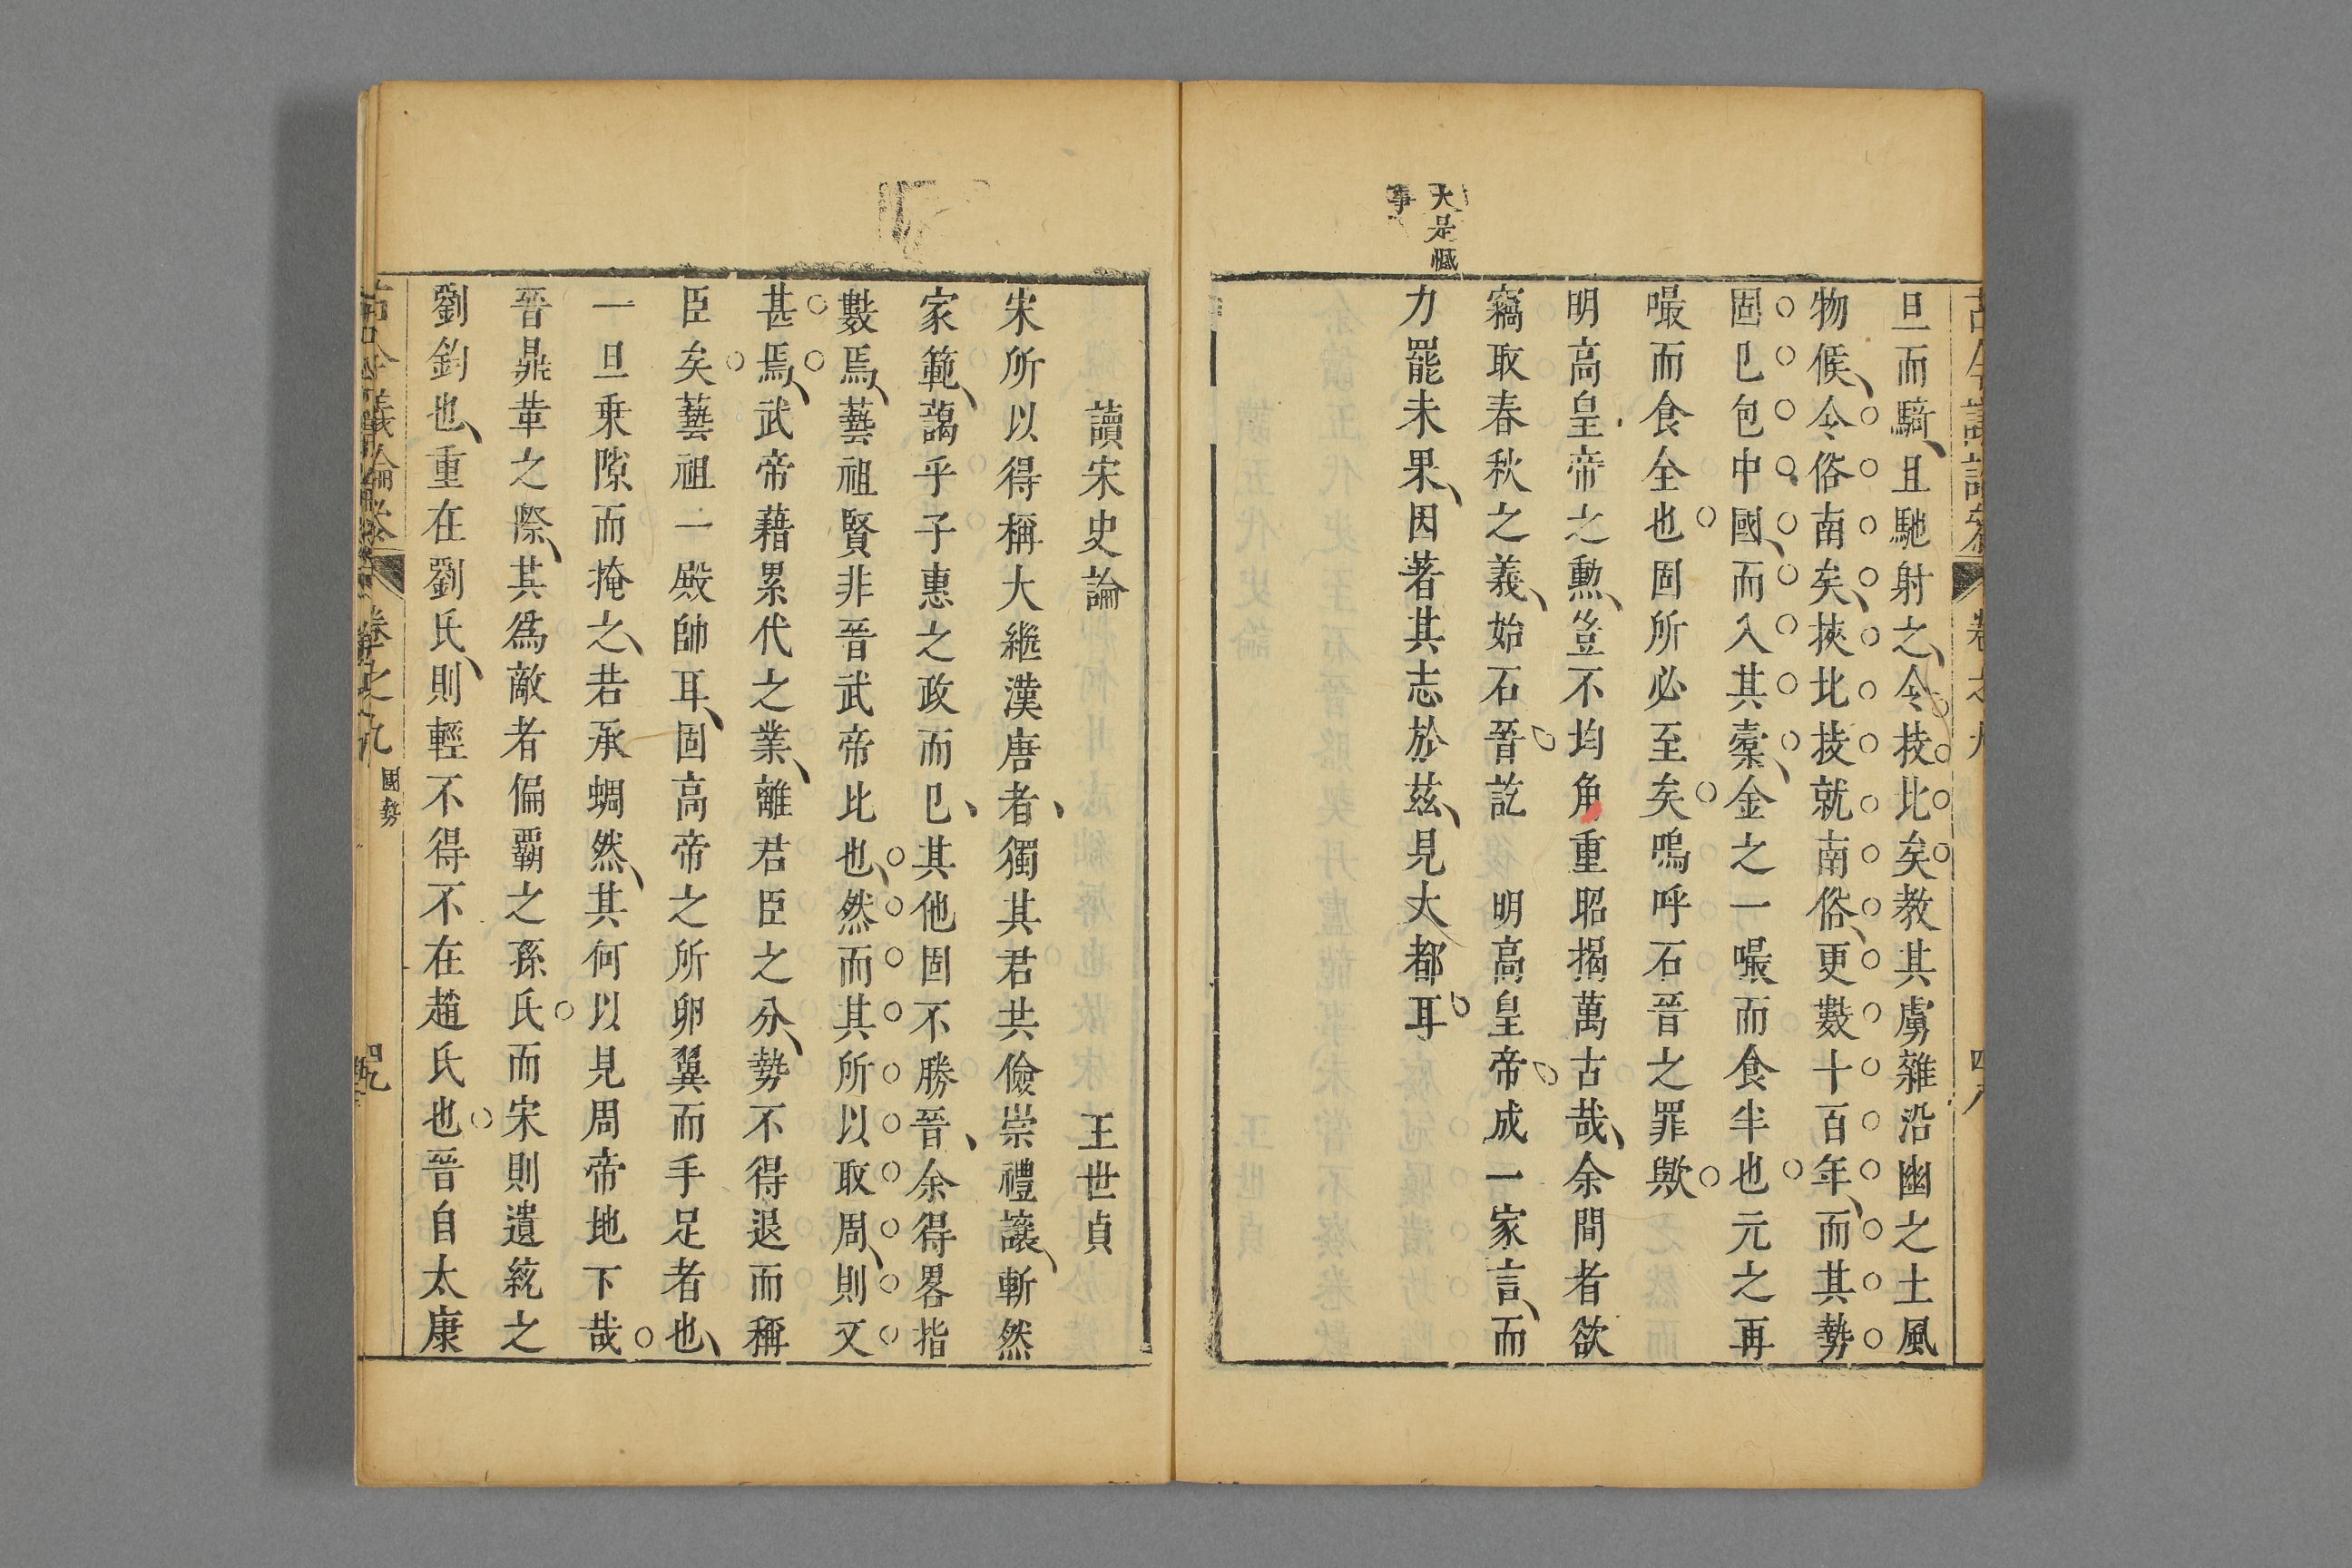 旦而騎且馳射之今技比矣教其虜雜沿幽之土風
物候今俗南矣挾北技就南俗更數十百年而其勢
固已包中國而入其槖金之一嘬而食半也元之再
嘬而食全也固所必至矣嗚呼石晉之罪歟
明高皇帝之勲豈不均角重昭揭萬古哉余間者欲
竊取春秋之義始石晉訖 明高皇帝成一家言而
力罷未果因著其志於茲見大都耳
大是憾
事
讀宋史論 王世貞
宋所以得稱大繼漢唐者獨其君共儉崇禮讓斬然
家範藹乎子惠之政而已其他固不勝晉余得畧指
數焉藝祖賢非晉武帝比也然而其所以取周則又
甚焉武帝藉累代之業離君臣之分勢不得退而稱
臣矣藝祖一殿帥耳固高帝之所卵翼而手足者也
一旦乗隙而掩之若承蜩然其何以見周帝地下哉
晉鼎革之際其爲敵者偏覇之孫氏而宋則遺統之
劉鈞也重在劉氏則輕不得不在趙氏也晉自太康
卷之九 國勢